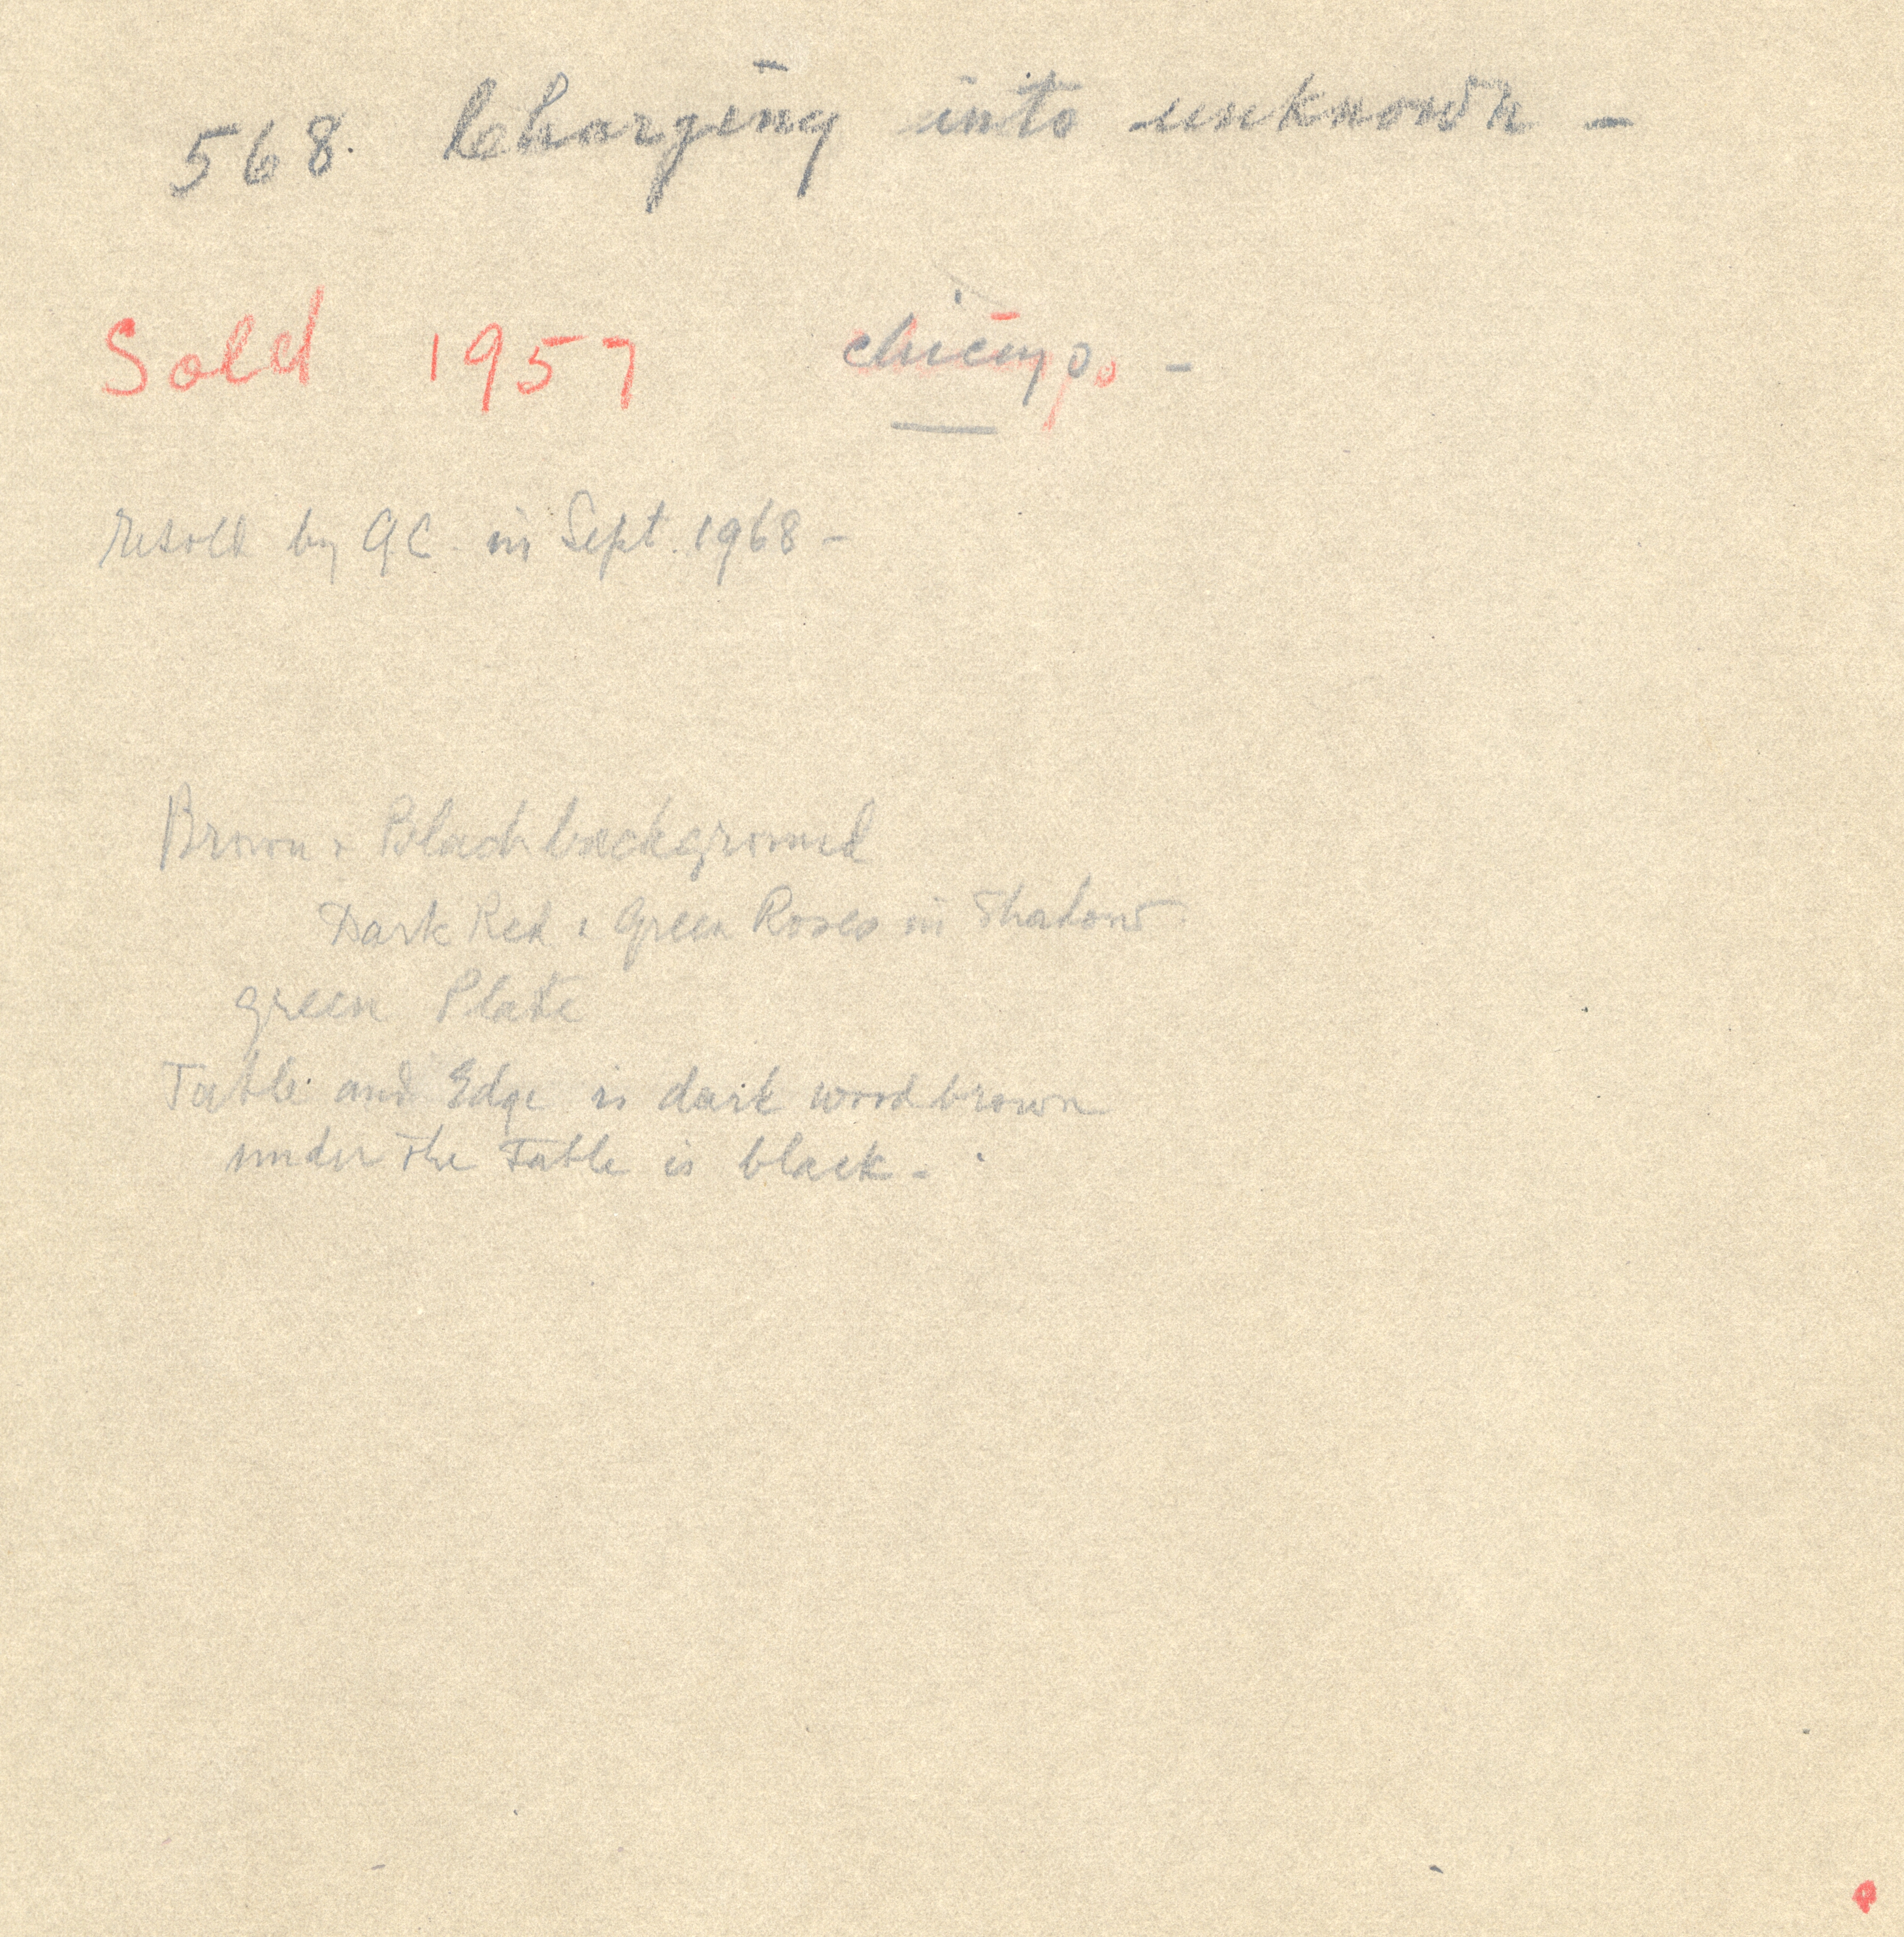 568. Charging into unknown –
Sold 1957 chicago. –
resold by GC. in Sept. 1968 –
Brown + Black background
Dark Red + Green Roses in Shadow
green Plate
Table and Edge is dark wood brown
under the Table is black –